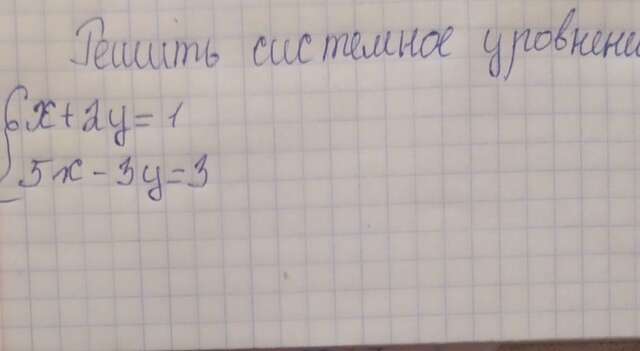 Решить системное уровнени
{ 6x+2y=1
5x-3y=3